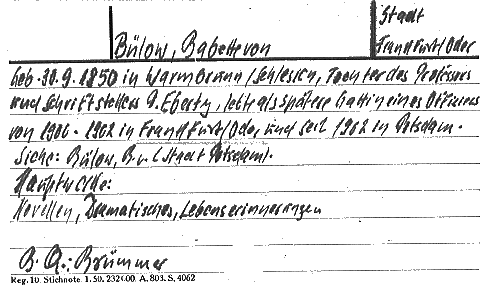 Stadt
Bülow, Babette von Frankfurt/Oder
geb. 30.9.1850 in Warmbrunn/Schlesien, Tochter des Professors
und Schriftstellers F. Eberty, lebte als spätere Gattin eines Offiziers
von in Frankfurt/Oder, und seit in Potsdam.
Siehe: Bülow, B. v. (Stadt Potsdam).
Hauptwerke:
Novellen, Dramatisches, Lebenserinnerungen
B. A.: Brümmer
Reg. 10. Stichnote. 1. 50. A. 803. S. 4062